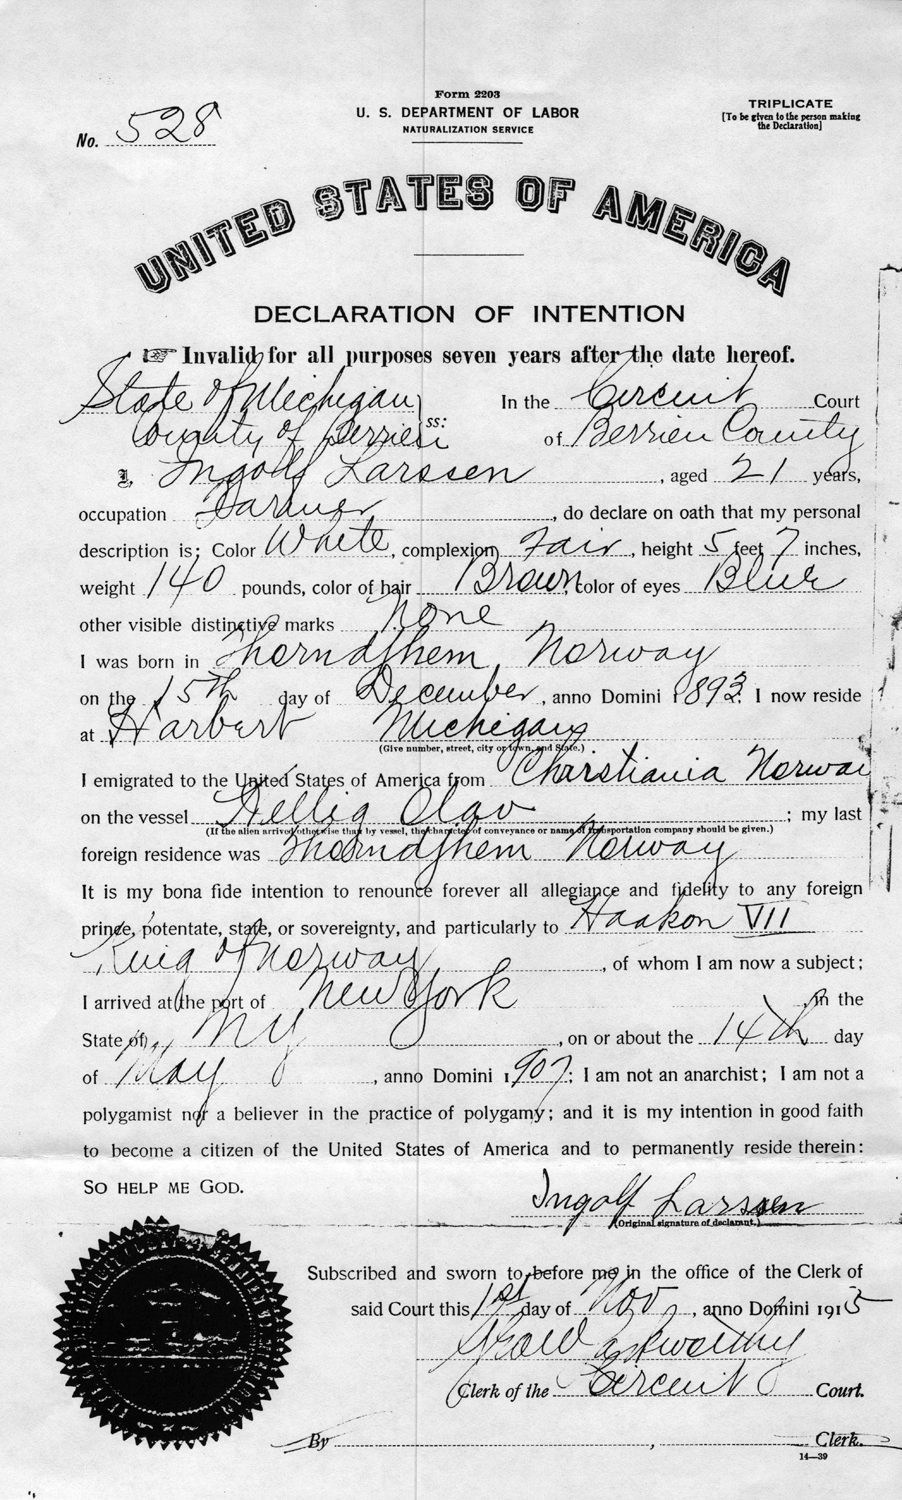 Form 2203
No. 528
U. S. DEPARTMENT OF LABOR
NATURALIZATION SERVICE
TRIPLICATE
[To be given to the person making
the Declaration]
UNITED STATES OF AMERICA
DECLARATION OF INTENTION
☞ Invalid for all purposes seven years after the date hereof.
State of Michigan } ss: In the Circuit Court
County of Berrien of Berrien County
I, Ingolf Larssen, aged 21 years,
occupation Farmer, do declare on oath that my personal
description is: Color White, complexion Fair, height 5 feet 7 inches,
weight 140 pounds, color of hair Brown, color of eyes Blue
other visible distinctive marks None
I was born in Thorndjhem, Norway
on the 15th day of December, anno Domini 1893; I now reside
at Harbert Michigan
(Give number, street, city or town, and State.)
I emigrated to the United States of America from Christiania Norway
on the vessel Hellig Olav; my last
(If the alien arrived otherwise than by vessel, the character of conveyance or name of transportation company should be given.)
foreign residence was Thorndjhem Norway
It is my bona fide intention to renounce forever all allegiance and fidelity to any foreign
prince, potentate, state, or sovereignty, and particularly to Haakon VII
King of Norway, of whom I am now a subject;
I arrived at the port of New York, in the
State of NY, on or about the 14th day
of May, anno Domini 1907; I am not an anarchist; I am not a
polygamist nor a believer in the practice of polygamy; and it is my intention in good faith
to become a citizen of the United States of America and to permanently reside therein:
SO HELP ME GOD.
Ingolf Larssen
(Original signature of declarant.)
Subscribed and sworn to before me in the office of the Clerk of
said Court this 1st day of Nov, anno Domini 1915
Clerk of the Circuit Court.
By , Clerk.
14—39